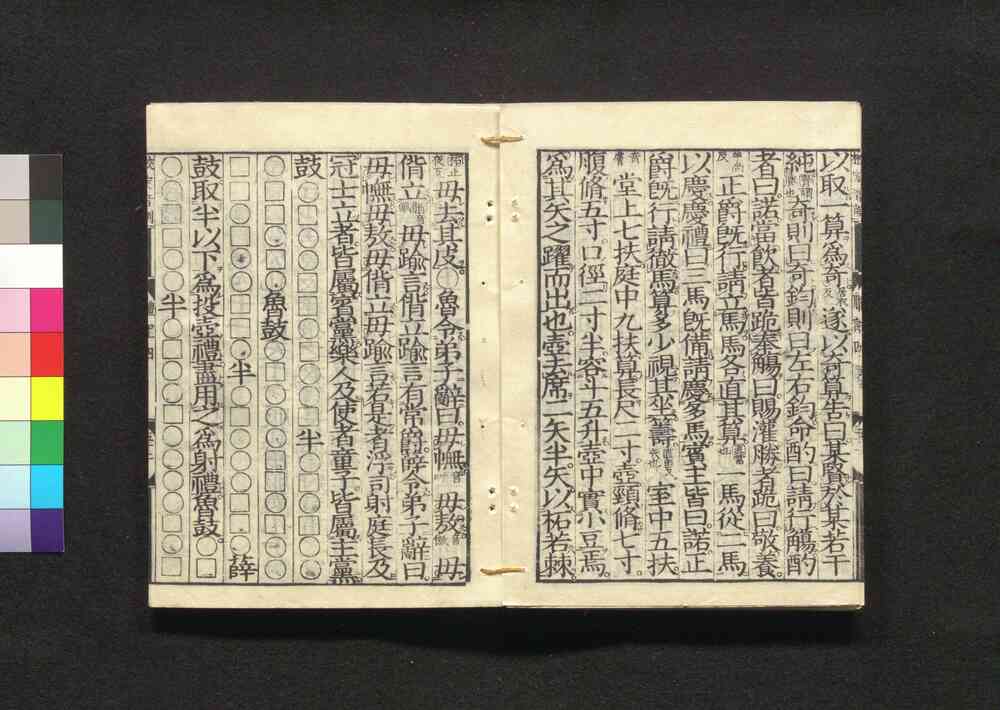 以取一算為奇遂以奇算告曰某賢於某若干
純奇則曰奇鈞則曰左右鈞命酌曰請行觴酌
者曰諾當飲者皆跪奉觴曰賜灌勝者跪曰敬養
正爵既行請立馬馬各直其算一馬從二馬
以慶慶禮曰三馬既備請慶多馬賓主皆曰諾正
爵既行請徹馬算多少視其坐籌室中五扶
堂上七扶庭中九扶算長尺二寸壺頸脩七寸
腹脩五寸口徑二寸半容斗五升壺中實小豆焉
為其矢之躍而出也壺去席二矢半矢以柘若棘
毋去其皮○魯令弟子辭曰毋幠毋敖毋
偝立毋踰言偝立踰言有常爵薛令弟子辭曰
毋幠毋敖毋偝立毋踰言若是者浮司射庭長及
冠士立者皆屬賓黨樂人及使者童子皆屬主黨
鼓 半
魯鼓
半 薛
鼓取半以下為投壺禮盡用之為射禮魯鼓
半